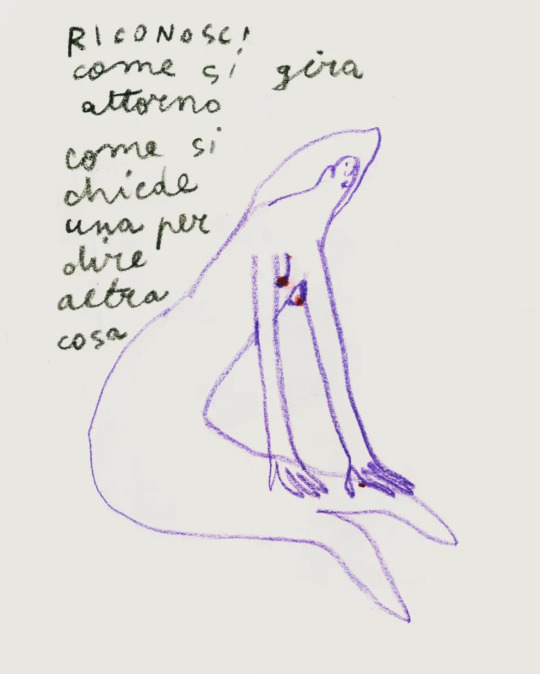 RICONOSCI
come si gira
attorno
come si
chiede
una per
dire
altra
cosa